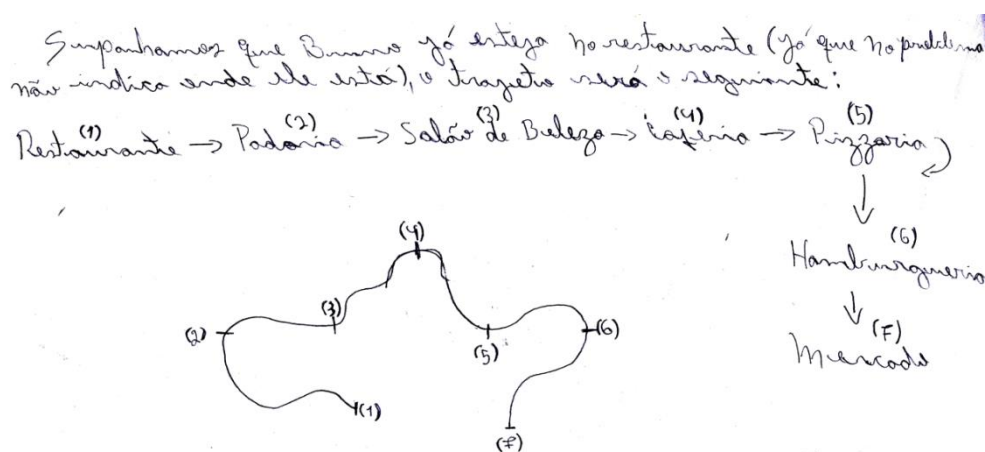 Suponhamos que Bruno já esteja no restaurante (já que no problema
não indica onde ele está), o trajeto será o seguinte:
(1) (2) (3) (4) (5)
Restaurante → Padaria → Salão de Beleza → Caferia → Pizzaria
(6)
Hamburgueria
(7)
Mercado
(4)
(3)
(2)
(5)
(6)
(1)
(7)